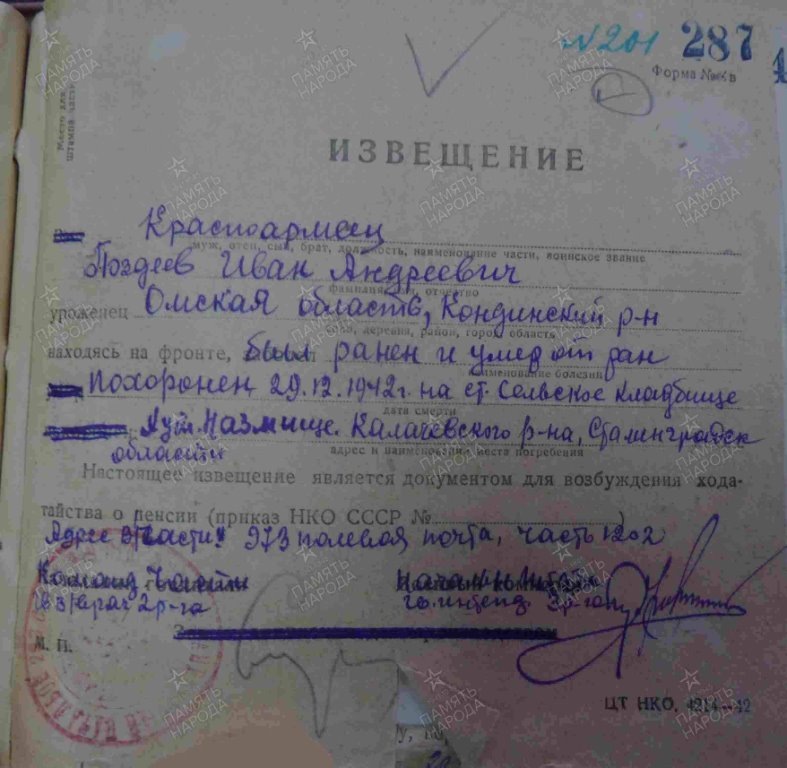 №201 287
Форма №
ИЗВЕЩЕНИЕ
Красноармеец
муж, отец, сын, брат, должность, наименование части, воинское звание
Поздеев Иван Андреевич
фамилия, имя, отчество
уроженец Омская область, Кондинский р-н
село, деревня, район, город, область
находясь на фронте, был ранен и умер от ран
наименование болезни
Похоронен 29.12.1942г. на ст. Сельское кладбище
дата смерти
Калачёвского р-на, Сталинградск
области
адрес и наименование места погребения
Настоящее извещение является документом для возбуждения хода-
тайства о пенсии (приказ НКО СССР № )
Адрес в/части: 973 полевая почта, часть 1202
Команд. части
в/врач 2р-га
М. П.
ЦТ НКО, 4214—42
ПАМЯТЬ НАРОДА